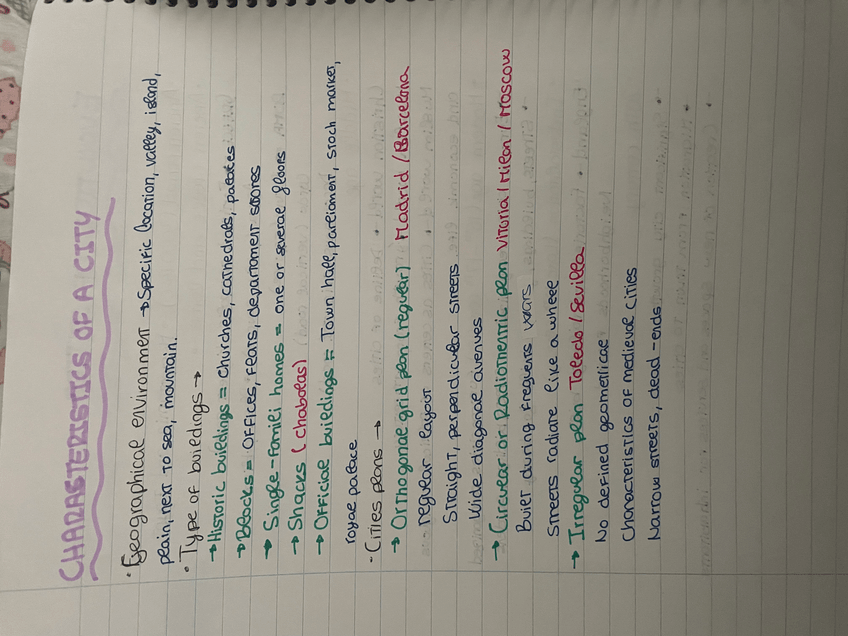 CHARASTERISTICS OF A CITY
· Geographical environment → Specific location, valley, island,
plain, next to sea, mountain.
· Type of buildings →
→ Historic buildings = Churches, cathedrals, palates
→ Blocks = Offices, flats, department stores
→ Single-famili homes = one or several floors
→ Shacks (chabolas)
→ Official buildings = Town hall, parliament, stoch market,
royal palace
· Cities plans →
→ Orthogonal grid plan (regular) Madrid / Barcelona
regular layout
Straight, perpendicular streets
Wide diagonal avenues
→ Circular or Radiomentric plan Vitoria / Milan / Moscow
Built during frequents wars
Streets radiate like a wheel
→ Irregular plan Toledo / Sevilla
No defined geometrical
Characteristics of medieval cities
Narrow streets, dead-ends